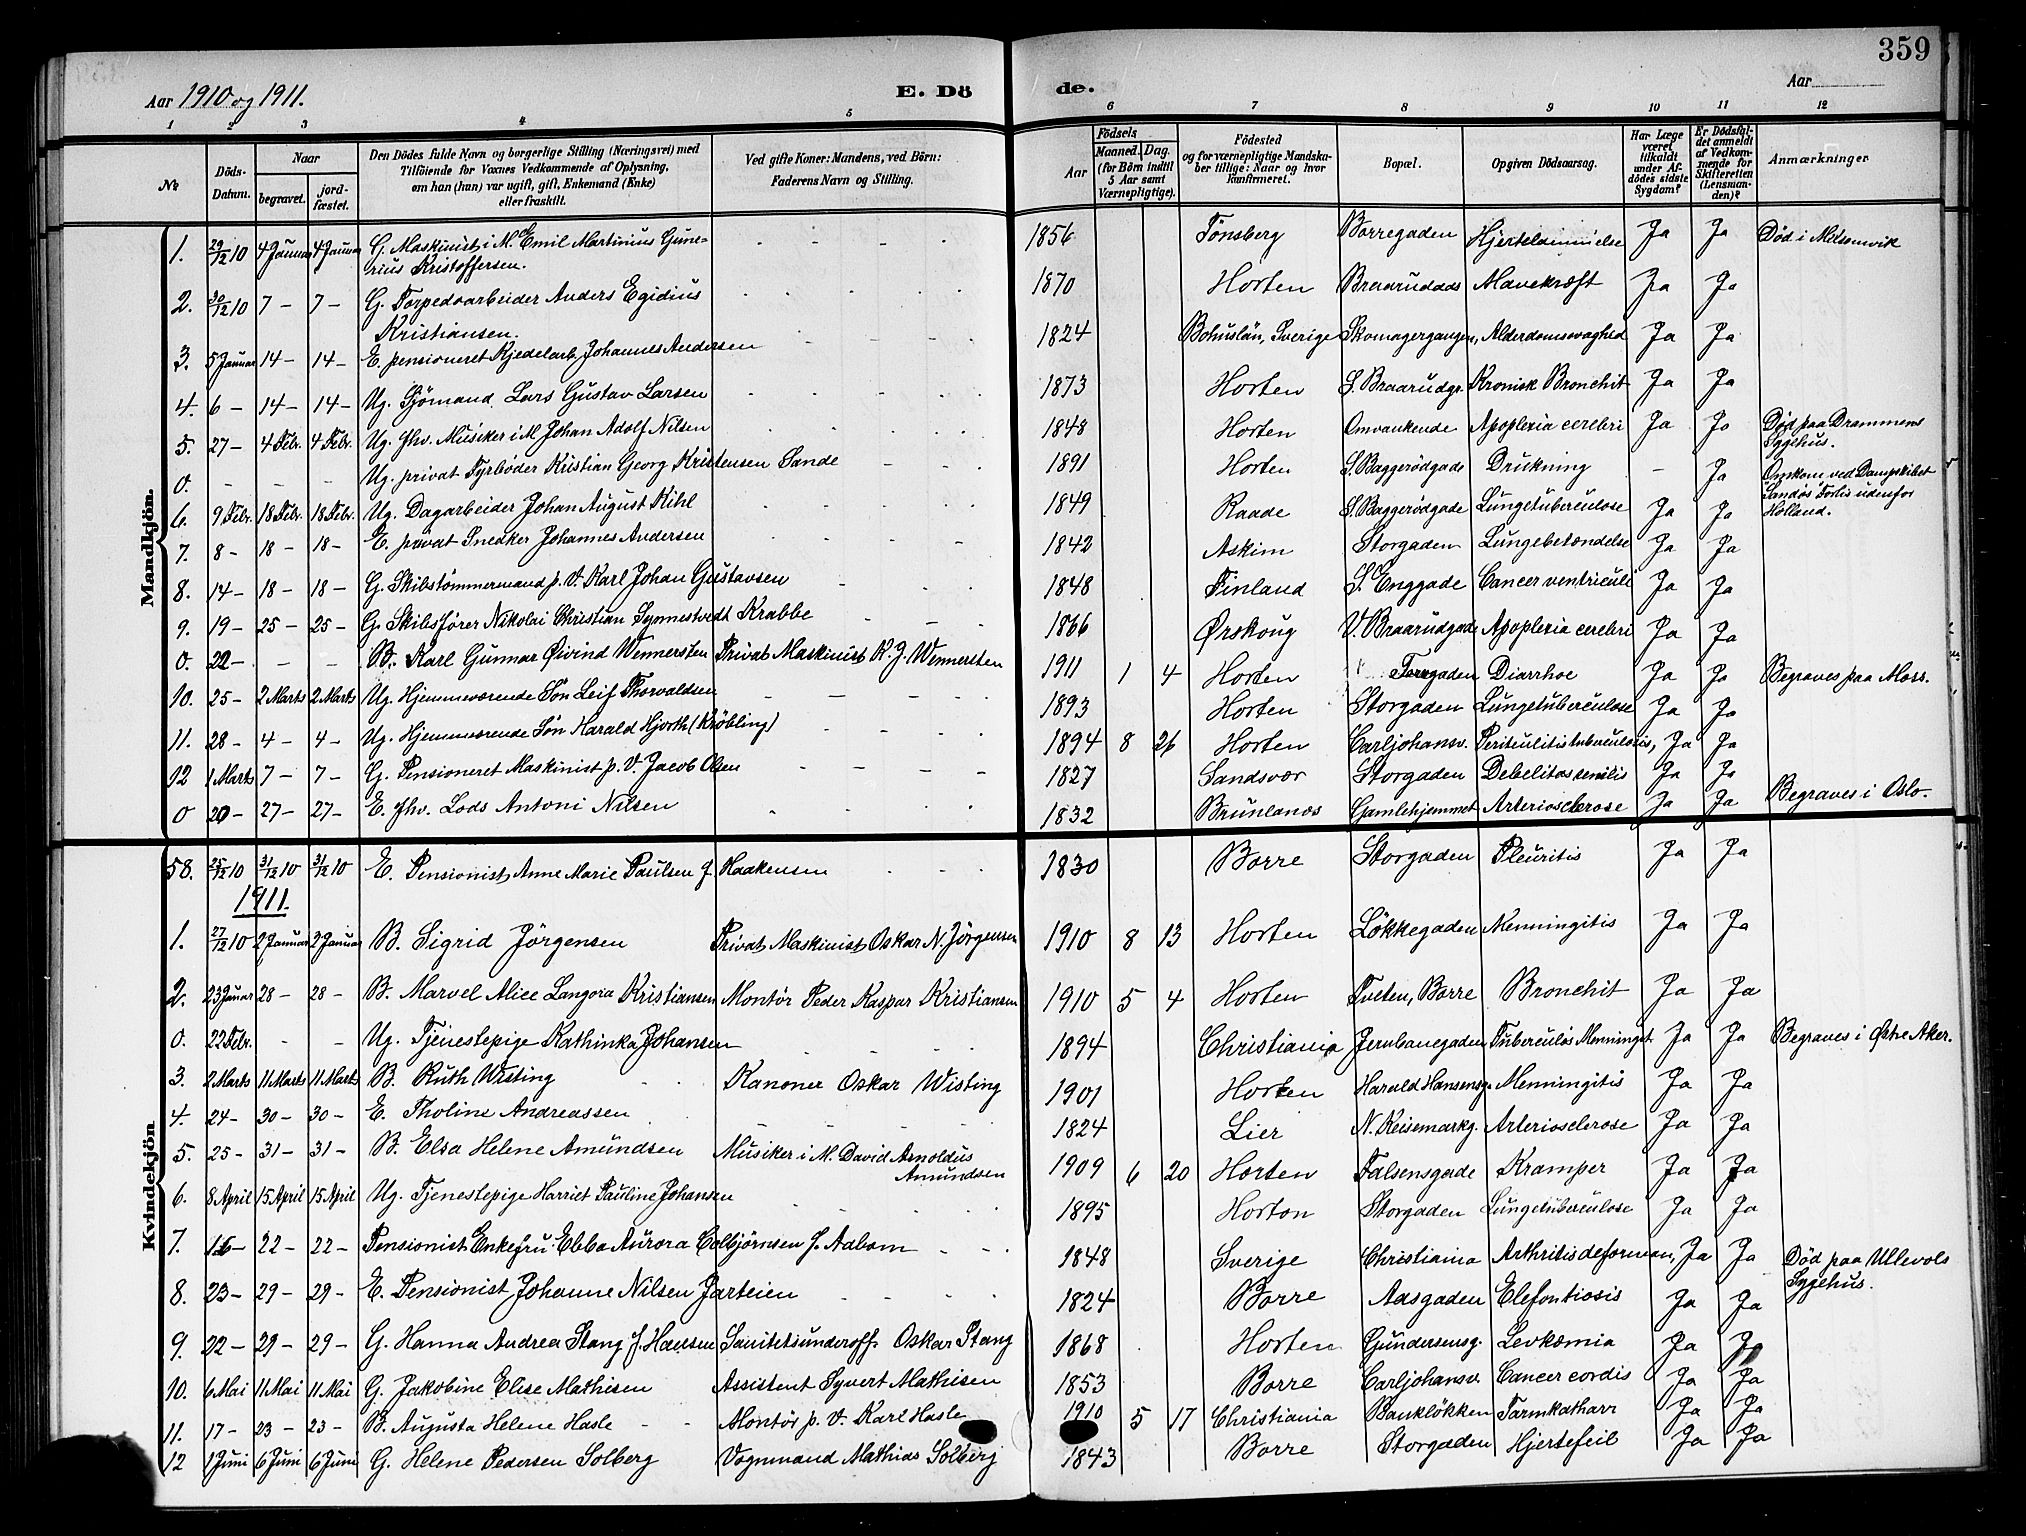 359
Aar 1910 og 1911. E. Dö de. Aar
1 2 3 4 5 6 7 8 9 10 11 12
№ Döds-Datum. Naar begravet. jordfæstet. Den Dödes fulde Navn og borgerlige Stilling (Næringsvei) med Tilföiende for Voxnes Vedkommende af Oplysning, om han (hun) var ugift, gift, Enkemand (Enke) eller fraskilt. Ved gifte Koner: Mandens, ved Börn: Faderens Navn og Stilling. Födsels Aar Maaned. Dag. (for Börn indtil 5 Aar samt Værnepligtige). Födested og for værnepligtige Mandskaber tillige: Naar og hvor konfirmeret. Bopæl. Opgiven Dödsaarsag. Har Læge været tilkaldt under Afdödes sidste Sygdom? Er Dödsfaldet anmeldt af Vedkommende for Skifteretten (Lensmanden)? Anmærkninger
Mandkjön.
1. 29/12 10 4 Januar 4 Januar G. Maskinist i M. Emil Martinius Gunerius Kristoffersen. 1856 Tönsberg Borregaden Hjertelammelse Ja Ja Död i Melsomvik
2. 30/12 10 7 – 7 – G. Torpedoarbeider Anders Egidius Kristiansen. 1870 Horten Braarudgds Mavekræft Ja Ja
3. 5 Januar 14 – 14 – E. pensioneret Kjedelarb. Johannes Andersen 1824 Bohuslän, Sverige Skomagergangen, Alderdomssvaghed Ja Ja
4. 6 – 14 – 14 – Ug. Sjömand Lars Gustav Larsen 1873 Horten S. Braarudgr. Kronisk Bronchit Ja Ja
5. 27 – 4 Febr. 4 Febr. Ug. fhv. Musiker i M Johan Adolf Nilsen 1848 Horten Omvankende Apoplexia cerebri Ja Ja Död paa Drammens Sygehus.
0. – – – Ug. privat Fyrböder Kristian Georg Kristensen Sande 1891 Horten S. Baggerödgade Drukning – Ja Omkom ved Dampskibet Sandøs Forlis udenfor Holland.
6. 9 Febr. 18 Febr. 18 Febr. Ug. Dagarbeider Johan August Kihl 1849 Raade S. Baggerödgade Lungetuberculose Ja Ja
7. 8 – 18 – 18 – E. privat Snedker Johannes Andersen 1842 Askim Storgaden Lungebetændelse Ja Ja
8. 14 – 18 – 18 – G. Skibstömmermand p. V. Karl Johan Gustavsen 1848 Finland S. Enggade Cancer ventriculi Ja Ja
9. 19 – 25 – 25 – G. Skibsförer Nikolai Christian Synnestvedt Krabbe 1866 Ørskoug V. Braarudgade Apoplexia cerebri Ja Ja
0. 22 – – – B. Karl Gunnar Øivind Wennersten Privat Maskinist K. J. Wennersten 1911 1 4 Horten Torvgaden Diarrhoe Ja Ja Begraves paa Moss.
10. 25 – 2 Marts 2 Marts Ug. Hjemmeværende Sön Leif Thorvaldsen 1893 Horten Storgaden Lungetuberculose Ja Ja
11. 28 – 4 – 4 – Ug. Hjemmeværende Sön Harald Hjorth (Kröbling) 1894 8 26 Horten Carljohansv. Ja Ja
12 1 Marts 7 – 7 – G. Pensioneret Maskinist p. V. Jacob Olsen 1827 Sandsvær Storgaden Debelitas senilis Ja Ja
0 20 – 27 – 27 – E. fhv. Lods Antoni Nilsen 1832 Brunlanæs Gamlehjemmet Arteriosclerose Ja Ja Begraves i Oslo.
Kvindekjön
58. 25/12 10 31/12 10 31/12 10 E. Pensionist Anne Marie Paulsen f. Haakensen 1830 Borre Storgaden Pleuritis Ja Ja
1911.
1. 27/12 10 2 Januar 2 Januar B. Sigrid Jörgensen Privat Maskinist Oskar N. Jörgensen 1910 8 13 Horten Lökkegaden Menningitis Ja Ja
2. 23 Januar 28 – 28 – B. Marvel Alice Langora Kristiansen Montör Peder Kaspar Kristiansen 1910 5 4 Horten Tveten, Borre Bronchit Ja Ja
0. 22 Febr. – – Ug. Tjenestepige Kathinka Johansen 1894 Christiania Jernbanegaden Tuberculös Menninget Ja Ja Begraves i Østre Aker.
3. 2 Marts 11 Marts 11 Marts B. Ruth Wisting Kanoner Oskar Wisting 1901 Horten Harald Hansensg. Menningitis Ja Ja
4. 24 – 30 – 30 – E. Tholine Andreassen 1824 Lier N. Keisemarkg. Arteriosclerose Ja Ja
5. 25 – 31 – 31 – B. Elsa Helene Amundsen Musiker i M. David Arnoldus Amundsen 1909 6 20 Horten Falsensgade Kramper Ja Ja
6. 8 April 15 April 15 April Ug. Tjenestepige Harriet Pauline Johansen 1895 Horten Storgaden Lungetuberculose Ja Ja
7. 16 – 22 – 22 – Pensionist Enkefru Ebba Aurora Colbjörnsen f. Adbom 1848 Sverige Christiania Arthritis deforman, Ja Ja Död paa Ullevols Sygehus.
8. 23 – 29 – 29 – E. Pensionist Johanne Nilsen Jarteien 1824 Borre Aasgaden Elefontiosis Ja Ja
9. 22 – 29 – 29 – G. Hanna Andrea Stang f. Hansen Sanitetsunderoff. Oskar Stang 1868 Horten Gundersensg. Levkæmia Ja Ja
10. 6 Mai 11 Mai 11 Mai G. Jakobine Elise Mathisen Assistent Syvert Mathisen 1853 Borre Carljohansv. Cancer cordis Ja Ja
11. 17 – 23 – 23 – B. Augusta Helene Hasle Montör p. V. Karl Hasle 1910 5 17 Christiania Banklökken Tarmkatharr Ja Ja
12 1 Juni 6 Juni 6 Juni G. Helene Pedersen Solberg Vognmand Mathias Solberg 1843 Borre Storgaden Hjertefeil Ja Ja